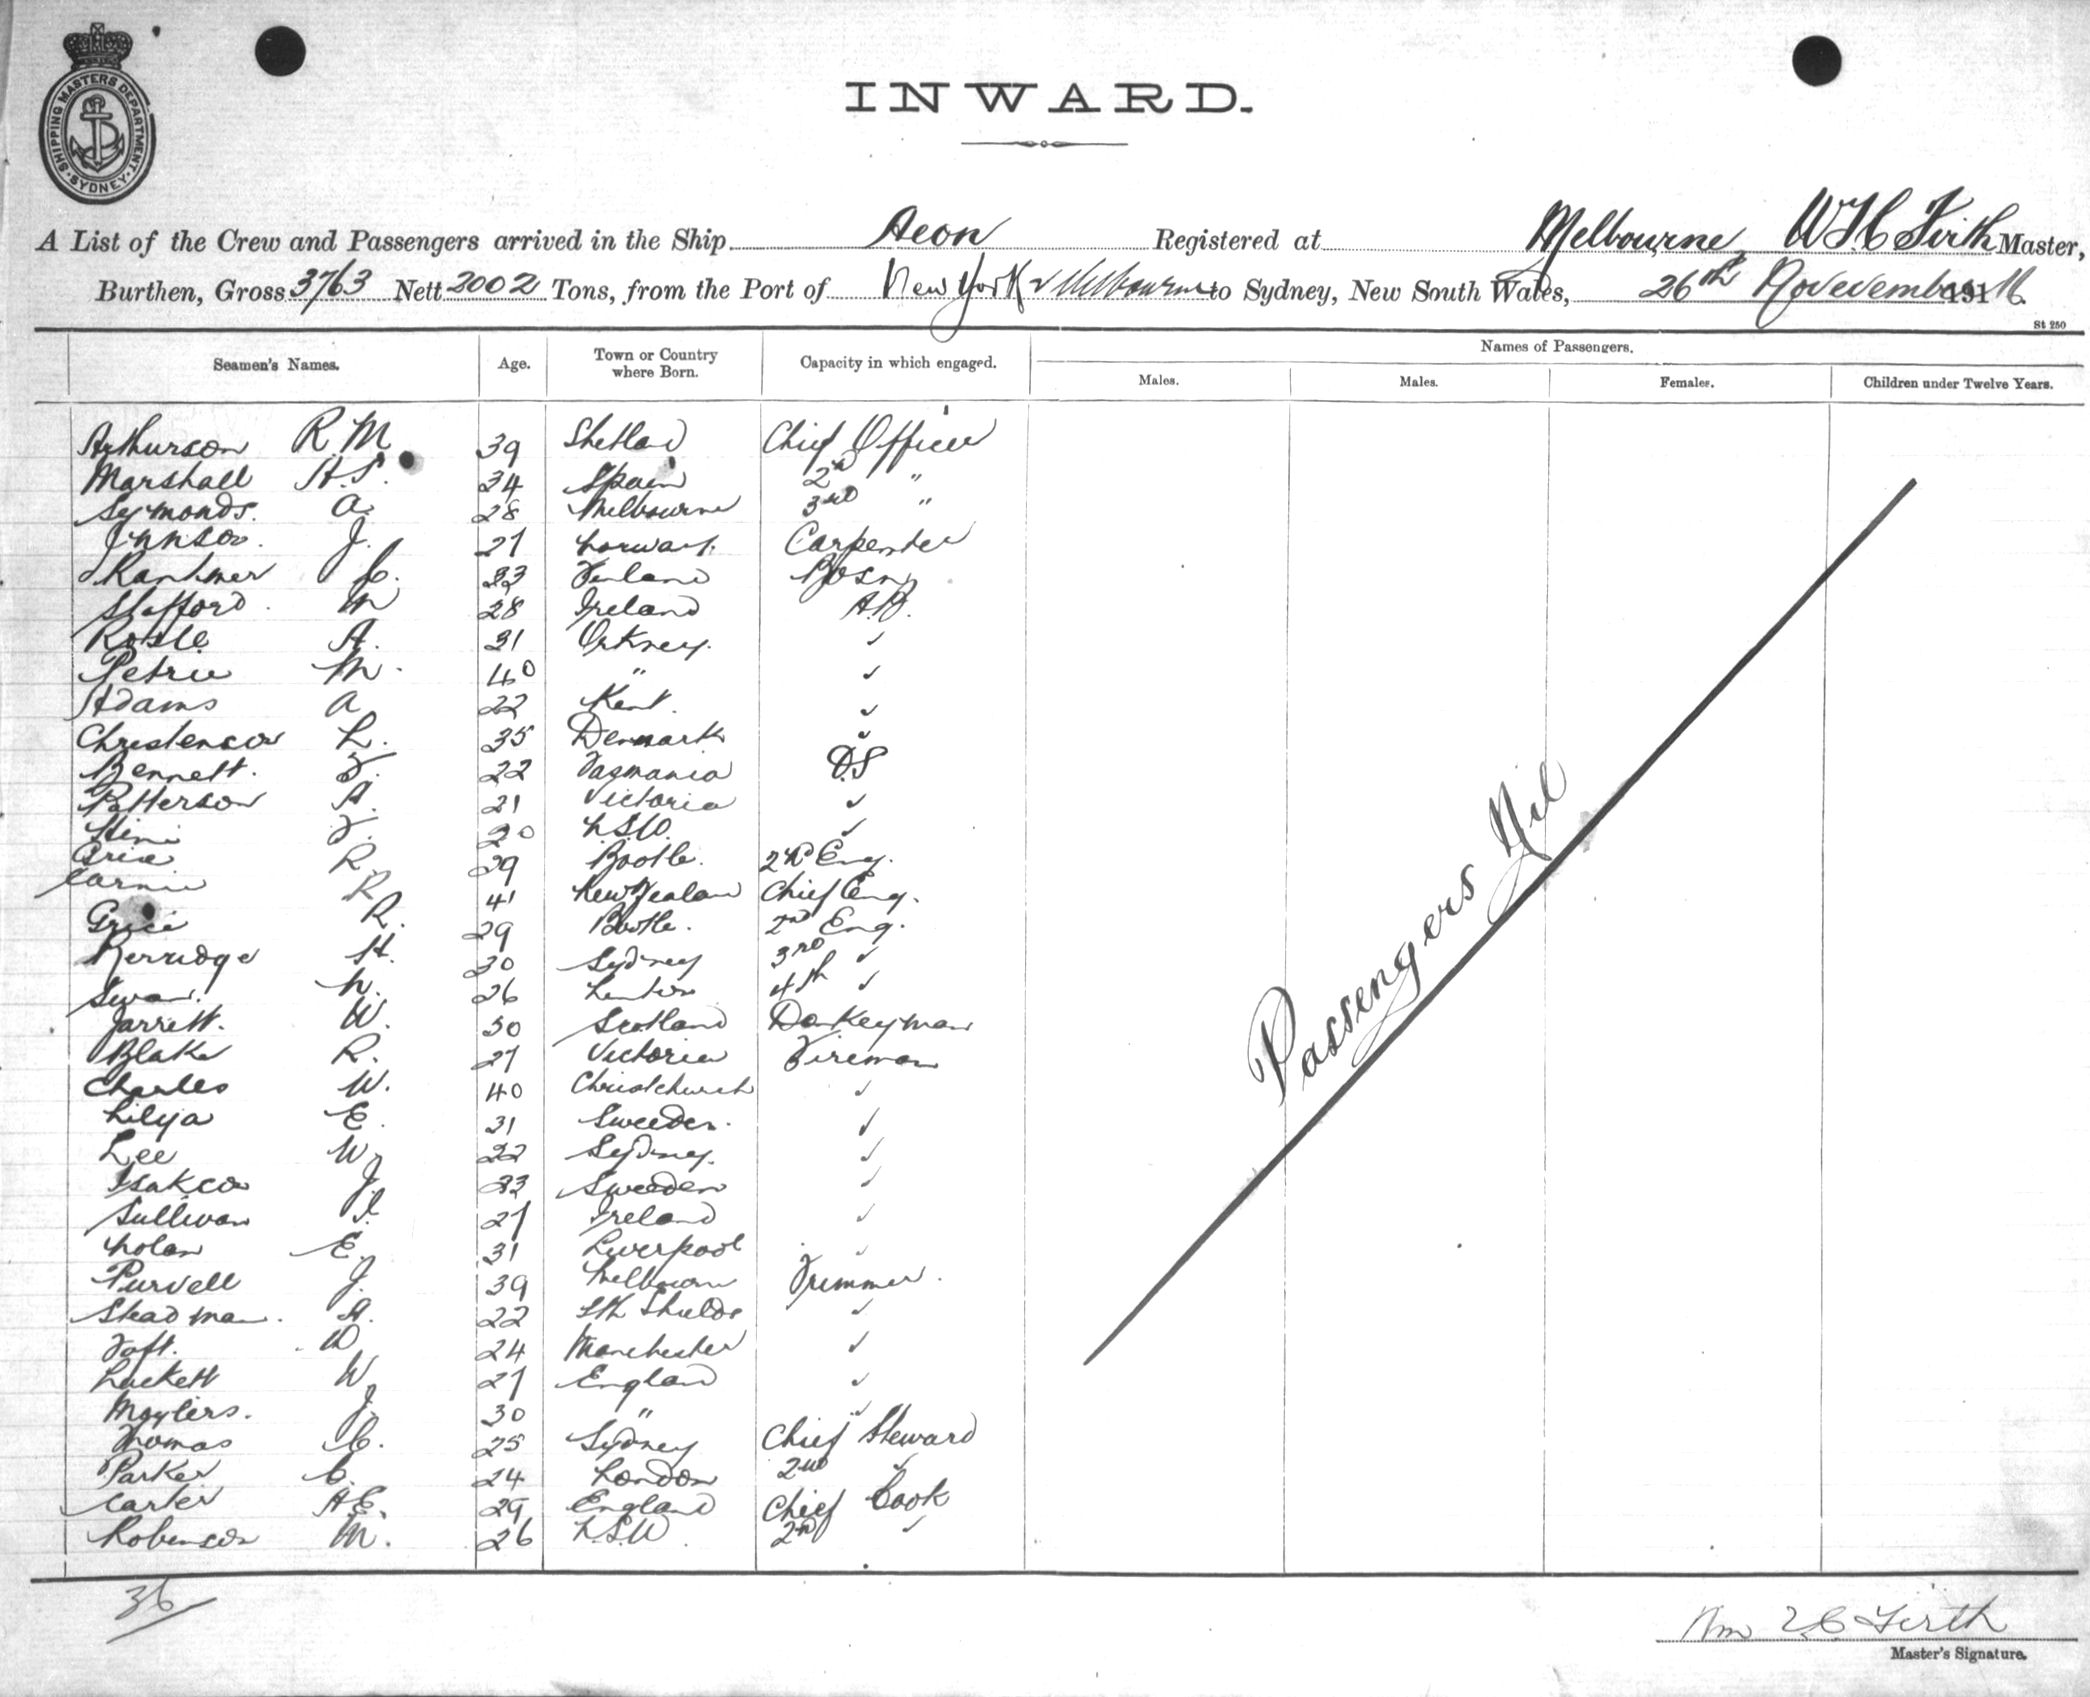 SHIPPING MASTERS DEPARTMENT. SYDNEY.
INWARD.
A List of the Crew and Passengers arrived in the Ship Aeon Registered at Melbourne, W H C Firth Master,
Burthen, Gross 3763 Nett 2002 Tons, from the Port of New York & Melbourne to Sydney, New South Wales, 26th Novevember 1911
St 250
Seamen's Names. Age. Town or Country where Born. Capacity in which engaged. Names of Passengers.
Males. Males. Females. Children under Twelve Years.
Arthurson R M 39 Shetland Chief Officer
Marshall H.S. 34 Spain 2nd "
Symonds. A. 28 Melbourne 3rd "
Johnson. J. 27 Norway. Carpenter
C. 33 Finland Bosn
Stafford. M 28 Ireland A.B.
A. 31 Orkney. ✓
Petrie M. 40 " ✓
Adams A 22 Kent. ✓
Christenson L. 35 Denmark ✓
Bennett. F. 22 Tasmania O.S
Patterson A. 21 Victoria ✓
F. 20 N.S.W. ✓
Grice R. 29 Bootle. 2nd Eng.
R 41 New Zealand Chief Eng.
Grice R. 29 Bootle. 2nd Eng.
Kerridge H. 30 Sydney 3rd ✓
Swan. N. 26 London 4th ✓
Jarrett. W. 50 Scotland Donkeyman
Blake R. 27 Victoria Fireman
Charles W. 40 Christchurch ✓
Lilya E. 31 Sweeden. ✓
Lee W 22 Sydney. ✓
Isakson J 33 Sweeden ✓
Sullivan J. 27 Ireland ✓
Nolan E. 31 Liverpool ✓
Purvell J. 39 Melbourne Trimmer.
Steadman. A. 22 Sth Shields ✓
Toft. W 24 Manchester ✓
Luckett W 27 England ✓
Moylers. J. 30 " "
Thomas C. 25 Sydney Chief Steward
Parker C. 24 London 2nd ✓
Carter A.E. 29 England Chief Cook
Robinson M. 26 N.S.W. 2nd ✓
Passengers Nil
36
Wm H C Firth
Master's Signature.